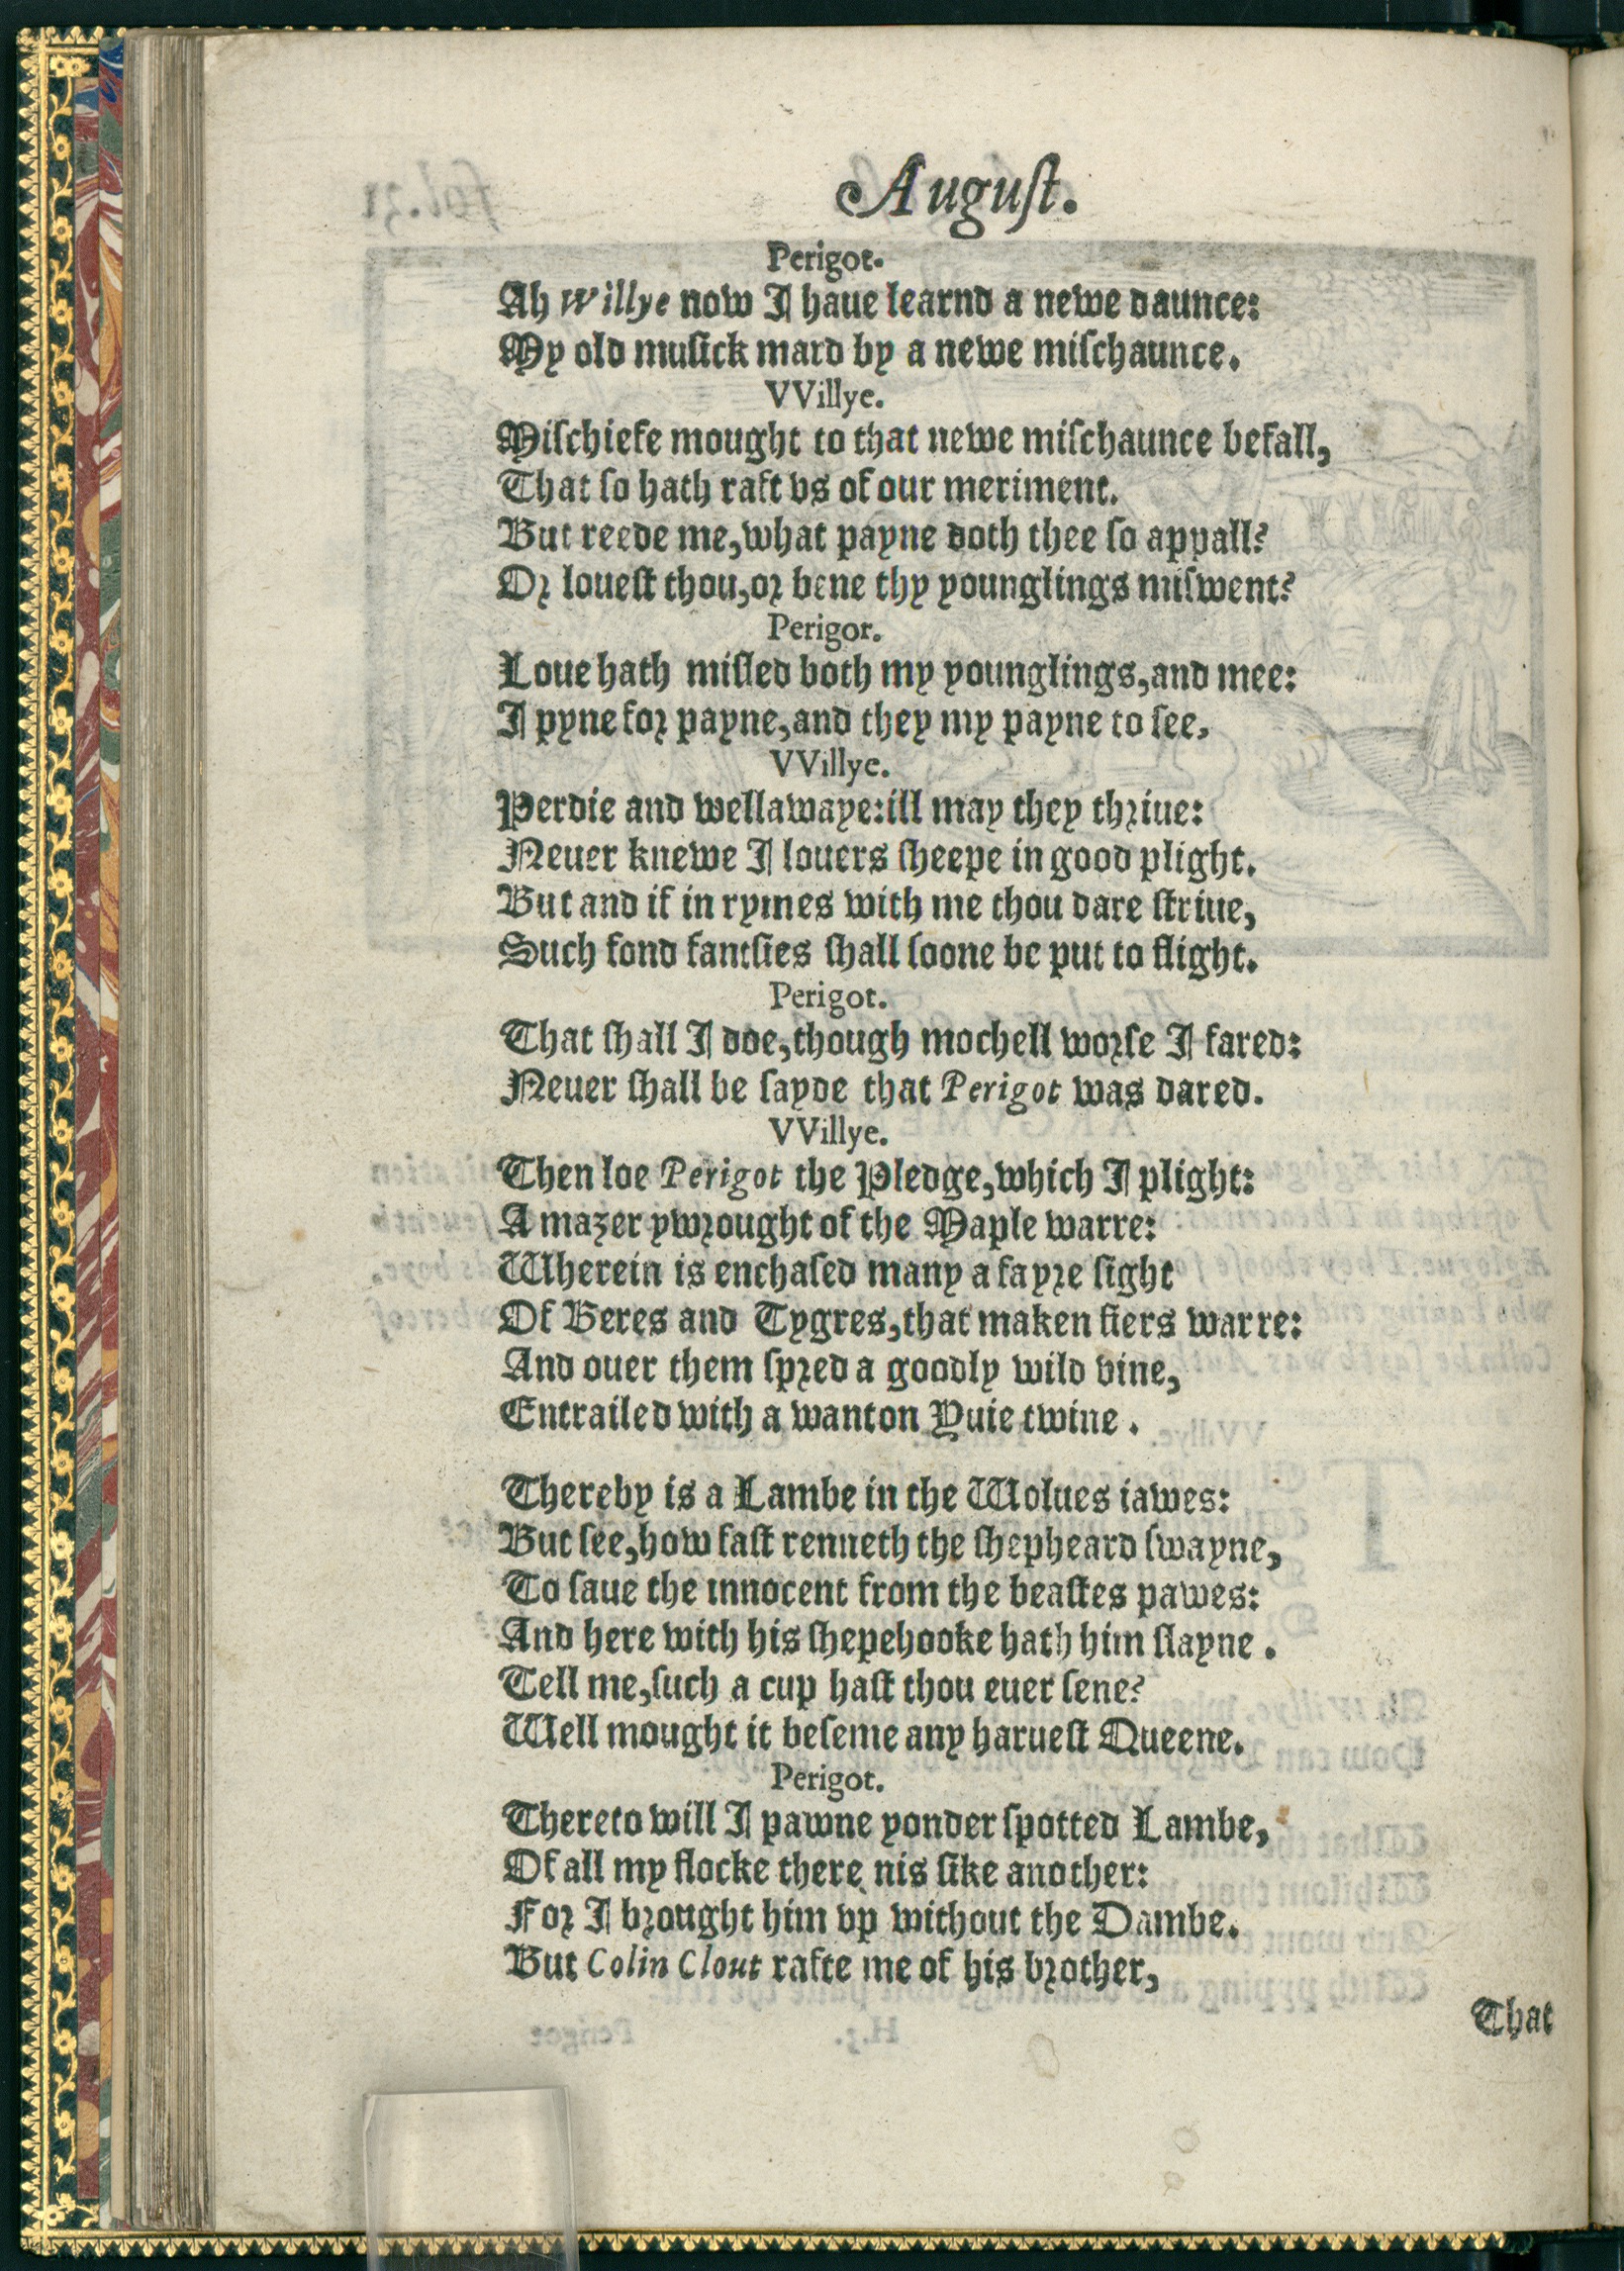 Auguſt.
Perigot.
Ah Willye now I haue learnd a newe daunce:
My old muſick mard by a newe miſchaunce.
VVillye.
Miſchiefe mought to that newe miſchaunce befall,
That ſo hath raft vs of our meriment.
But reede me, what payne doth thee ſo appall?
Or loueſt thou, or bene thy younglings miſwent?
Perigot.
Loue hath miſled both my younglings, and mee:
I pyne for payne, and they my payne to ſee.
VVillye.
Perdie and wellawaye: ill may they thriue:
Neuer knewe I louers ſheepe in good plight.
But and if in rymes with me thou dare ſtriue,
Such fond fantſies ſhall ſoone be put to flight.
Perigot.
That ſhall I doe, though mochell worſe I fared:
Neuer ſhall be ſayde that Perigot was dared.
VVillye.
Then loe Perigot the Pledge, which I plight:
A mazer ywrought of the Maple warre:
Wherein is enchaſed many a fayre ſight
Of Beres and Tygres, that maken fiers warre:
And ouer them ſpred a goodly wild vine,
Entrailed with a wanton Yuie twine.
Thereby is a Lambe in the Wolues iawes:
But ſee, how faſt renneth the ſhepheard ſwayne,
To ſaue the innocent from the beaſtes pawes:
And here with his ſhepehooke hath him ſlayne.
Tell me, ſuch a cup haſt thou euer ſene?
Well mought it beſeme any harueſt Queene.
Perigot.
Thereto will I pawne yonder ſpotted Lambe,
Of all my flocke there nis ſike another:
For I brought him vp without the Dambe.
But Colin Clout rafte me of his brother,
That